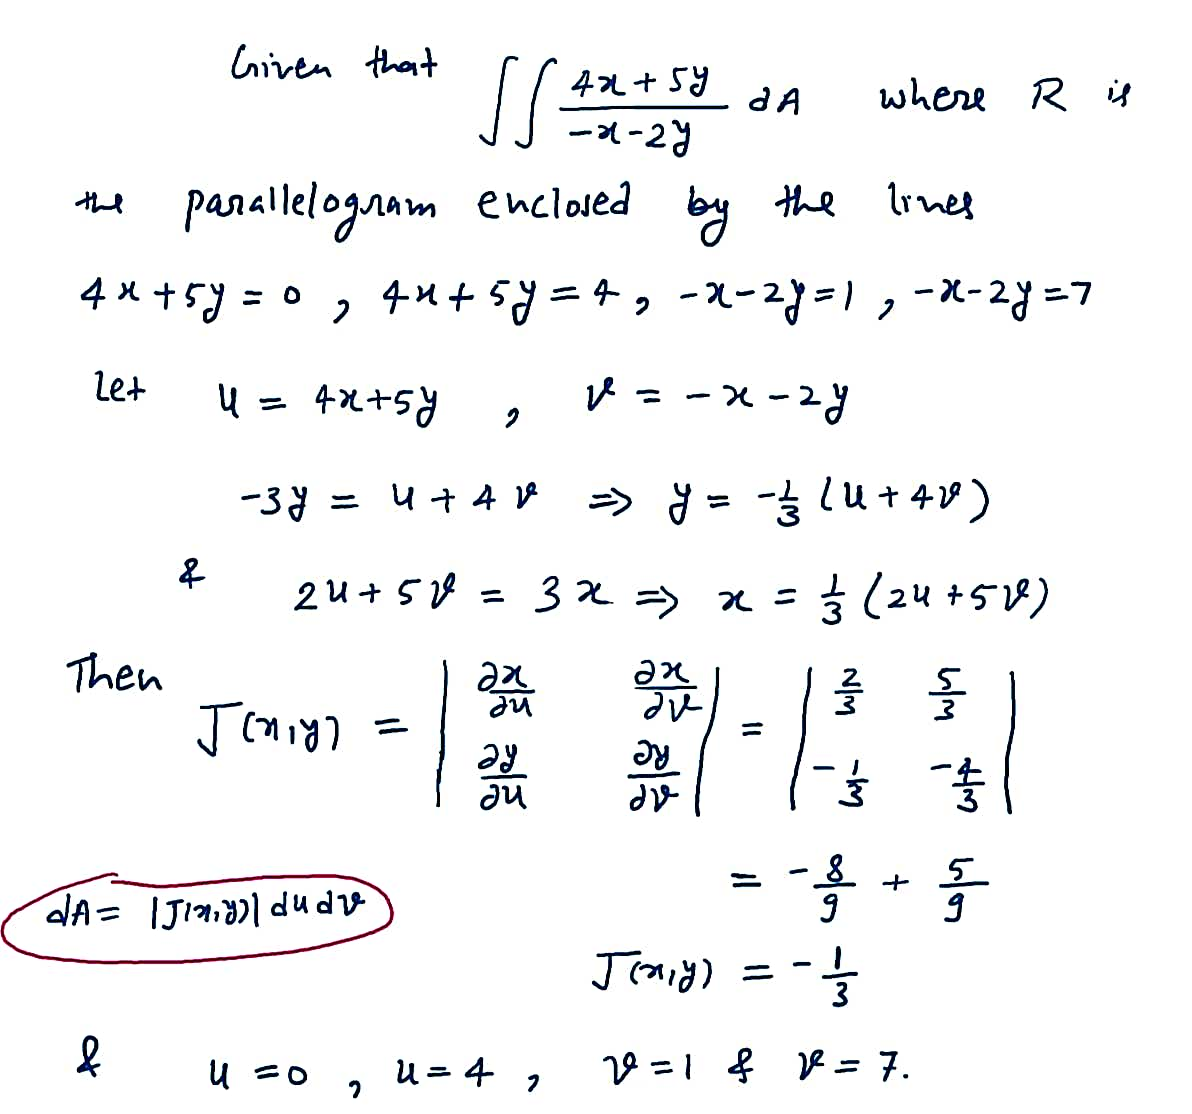 Given that ∫∫ (4x+5y)/(-x-2y) dA where R is
the parallelogram enclosed by the lines
4x+5y=0, 4x+5y=4, -x-2y=1, -x-2y=7
Let u = 4x+5y, v = -x-2y
-3y = u+4v ⇒ y = -1/3 (u+4v)
& 2u+5v = 3x ⇒ x = 1/3 (2u+5v)
Then J(x,y) = | ∂x/∂u ∂x/∂v ; ∂y/∂u ∂y/∂v | = | 2/3 5/3 ; -1/3 -4/3 |
= -8/9 + 5/9
dA = |J(x,y)| du dv
J(x,y) = -1/3
& u=0, u=4, v=1 & v=7.